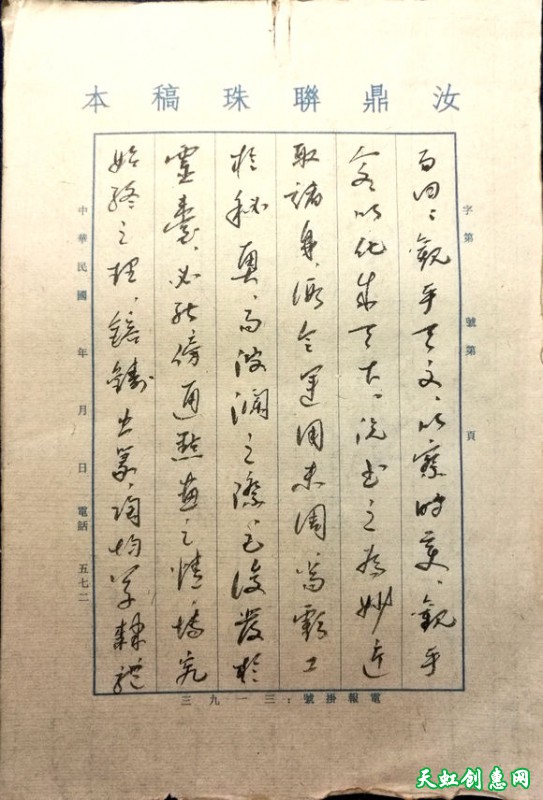 汝鼎聯珠稿本
字第 號第 頁
曰、觀乎天文、以察時變、觀乎
文以化成天下、況書之為妙近
取諸身、假令運用未周、尚虧工
於秘奧、而波瀾之際、已浚發於
靈臺、必能傍通點畫之情、博究
始終之理、鎔鑄虫篆、陶均草隸體
中華民國 年 月 日 電話 五七二
電報掛號：三一九三
天虹创惠网